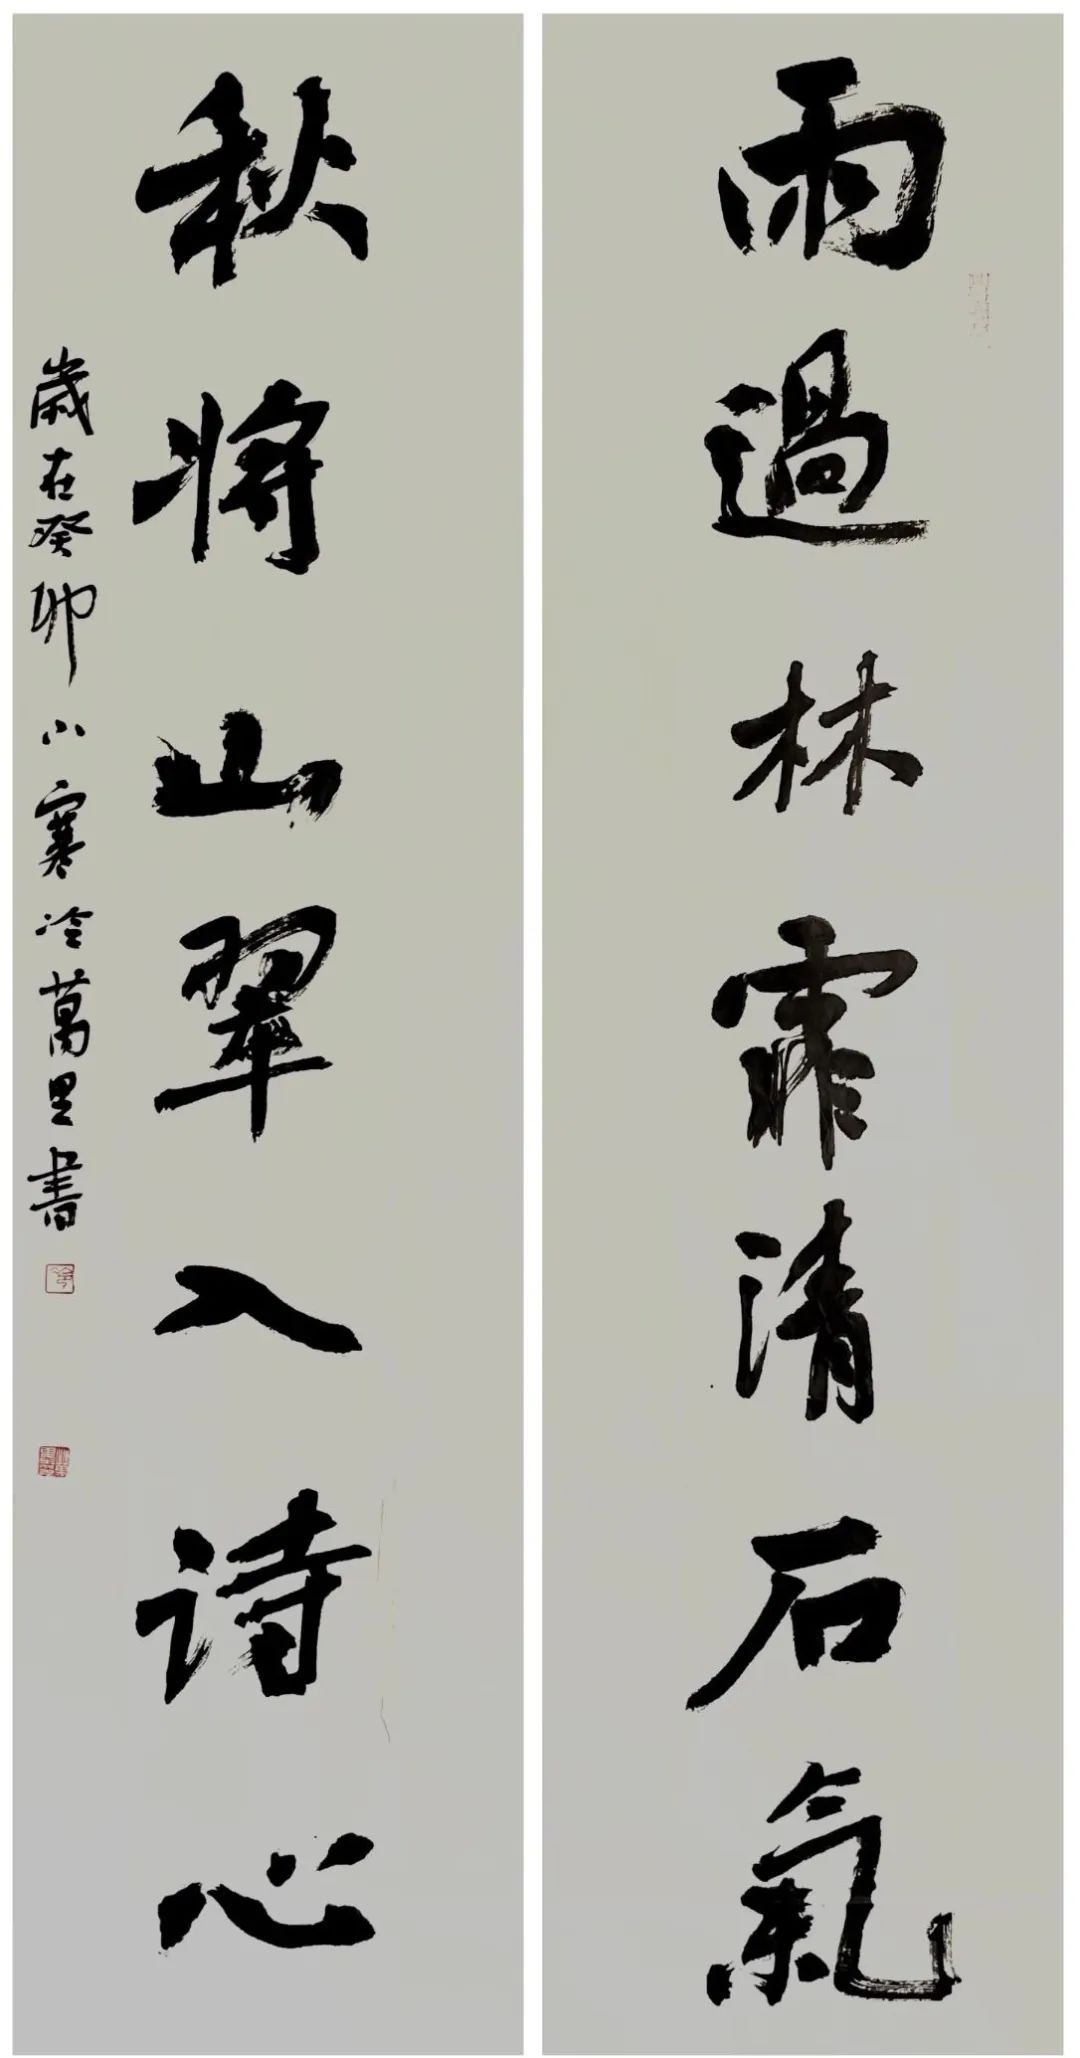 雨過林霏清石氣
秋將山翠入詩心
歲在癸卯小寒冷萬里書